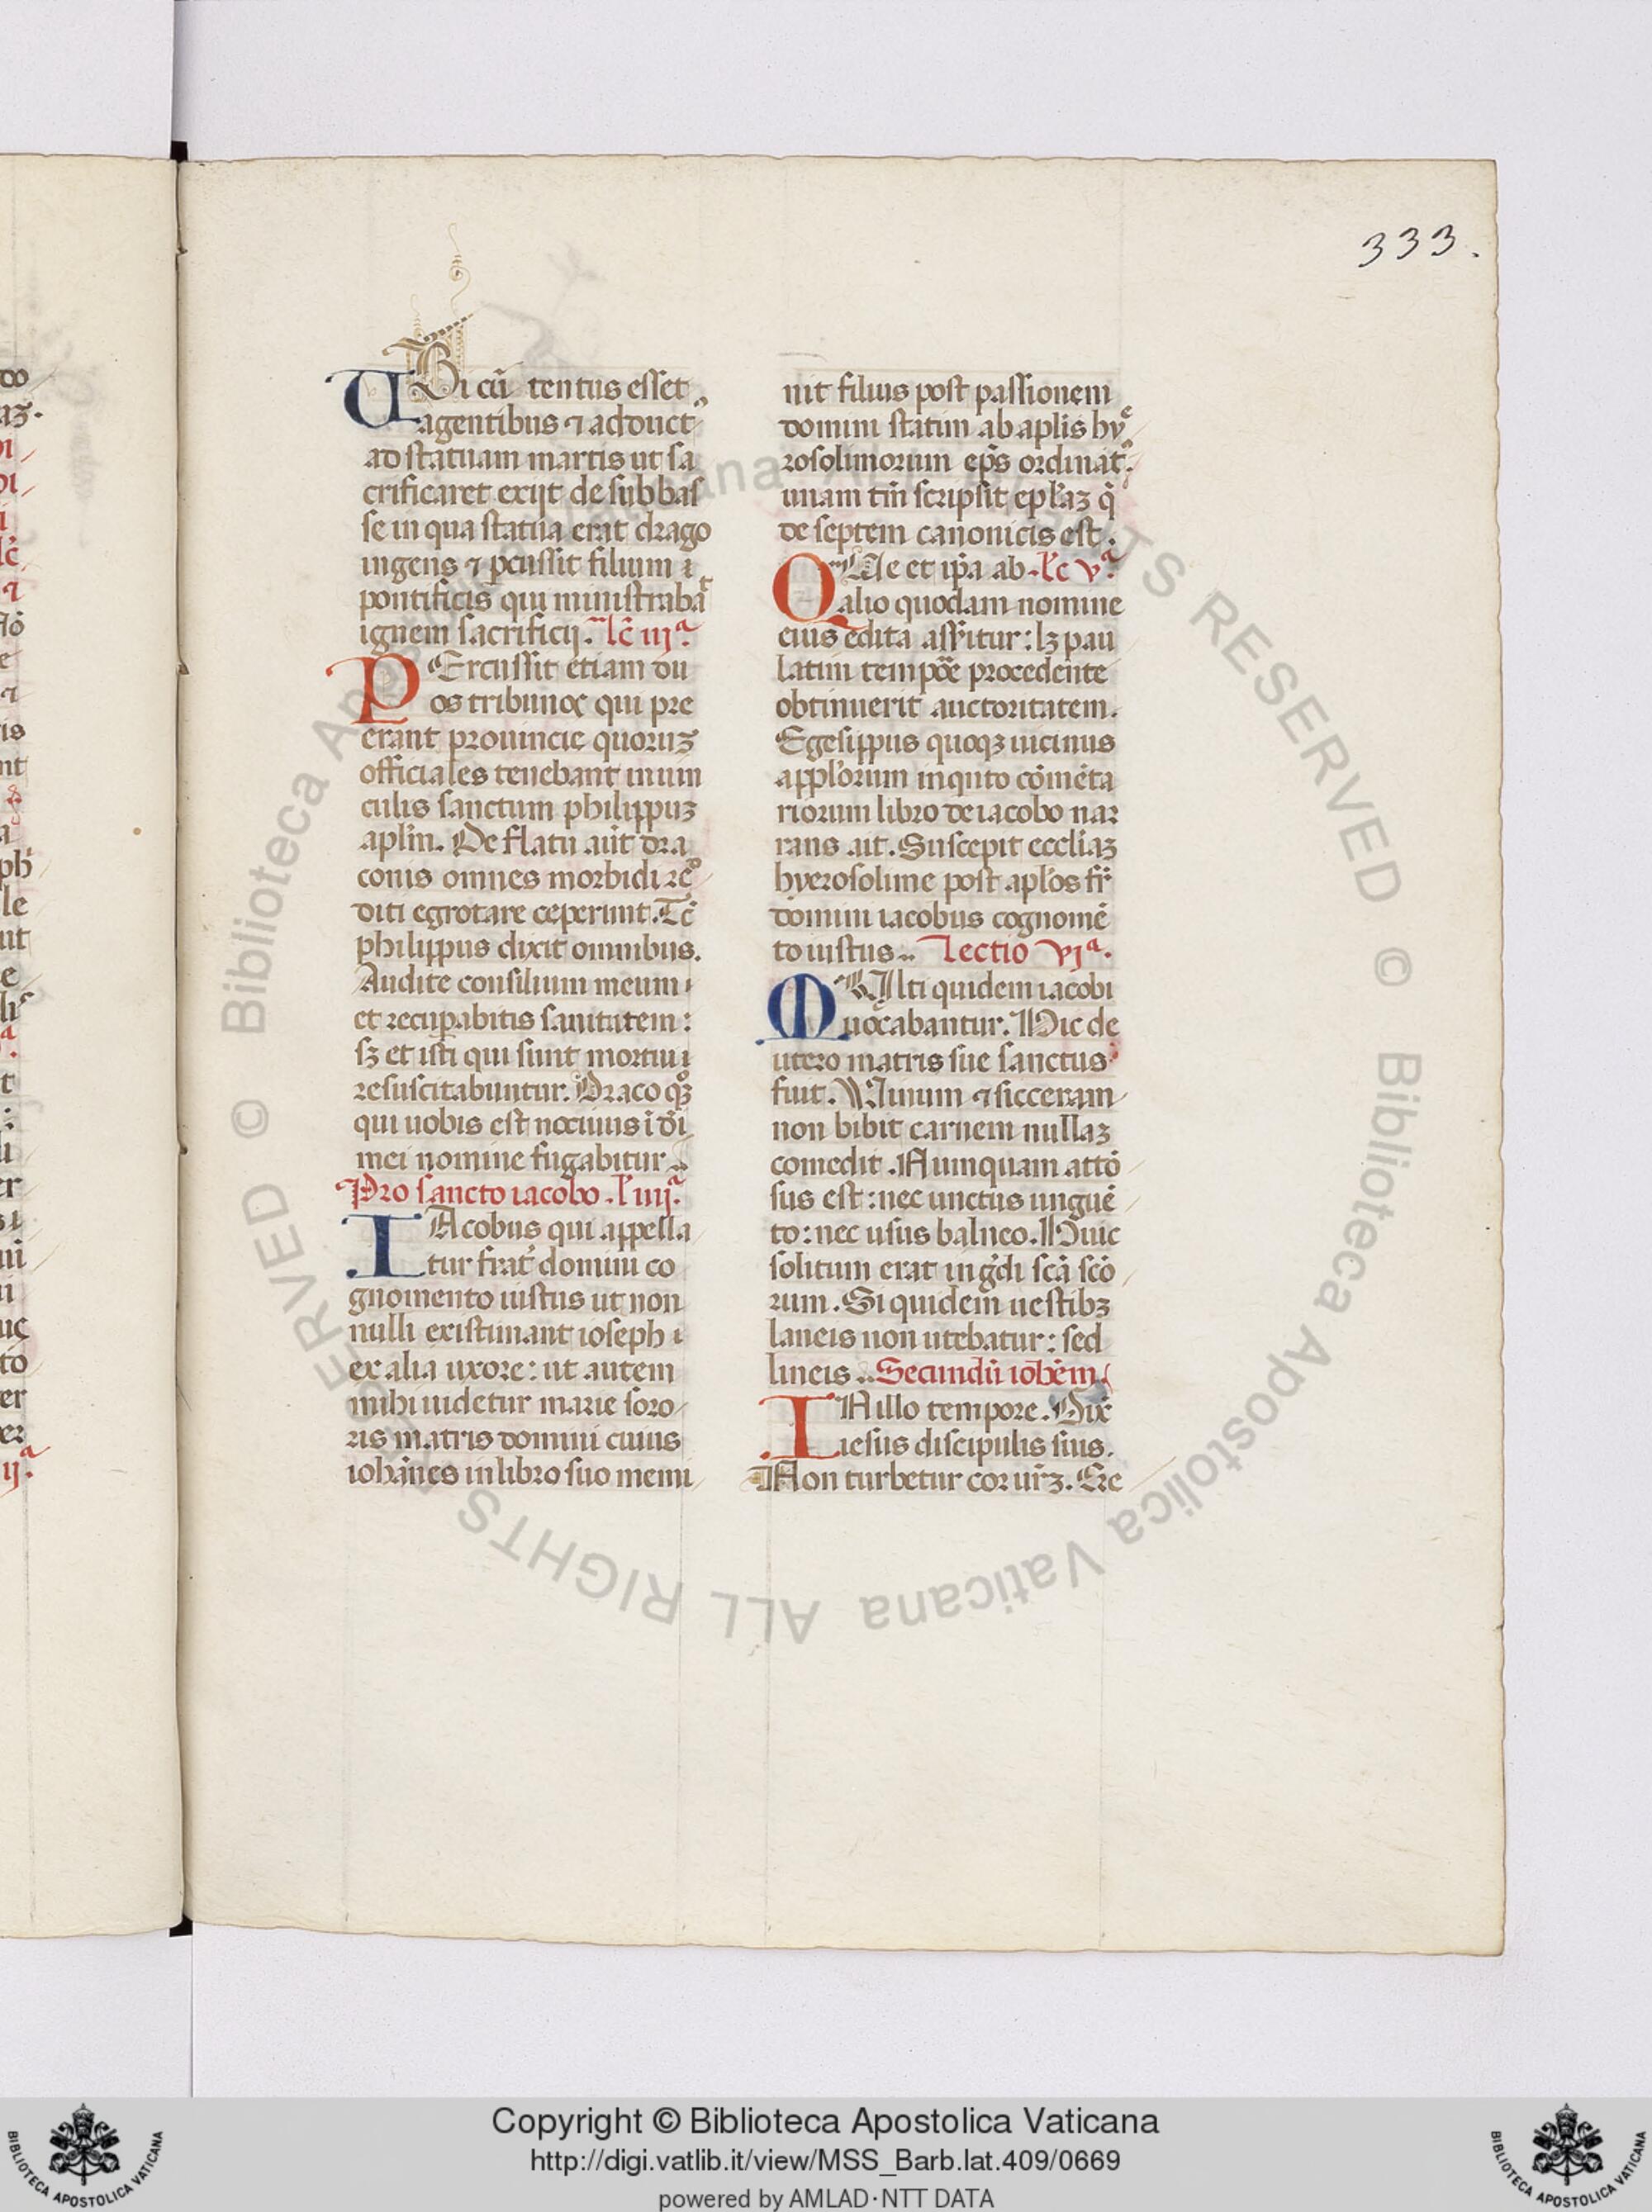 333.
UBi cū tentus esset
agentibus ⁊ adductꝰ
ad statuam martis ut sa
crificaret exijt de sub bas
se in qua statua erat drago
ingens ⁊ ꝑcussit filium
pontificis qui ministrabat
ignem sacrificij. lc̄ iijᵃ.
PErcussit etiam du
os tribunos qui pre
erant prouincie quoruꝫ
officiales tenebant in uin
culis sanctum philippuꝫ
aplm̄. De flatu aūt dra
conis omnes morbidi re
diti egrotare ceperunt. Tc̄
philippus dixit omnibus.
Audite consilium meum
et recuꝑabitis sanitatem:
sꝫ et isti qui sunt mortui
resuscitabuntur. Draco qͦꝫ
qui uobis est nociuus ī dn̄i
mei nomine fugabitur.
Pro sancto iacobo. l' iiijᵃ.
IAcobus qui appella
tur frat' domini co
gnomento iustus ut non
nulli existimant ioseph
ex alia uxore: ut autem
mihi uidetur marie soro
ris matris domini cuius
iohānes in libro suo memi
nit filius post passionem
domini statim ab aplis hye
rosolimorum ep̄s ordinatꝰ.
unam tm̄ scripsit epl'aꝫ q̄
de septem canonicis est.
QUe et ip̄a ab lc̄ vᵃ.
alio quodam nomine
eius edita asseritur: lꝫ pau
latim tempōe procedente
obtinuerit auctoritatem.
Egesippus quoqꝫ uicinus
appl'orum in quīto cōmēta
riorum libro de iacobo nar
rans ait. Suscepit eccliaꝫ
hyerosolime post apl'os fr̄
domini iacobus cognomē
to iustus. Lectio vjᵃ.
MUlti quidem iacobi
uocabantur. Hic de
utero matris sue sanctus
fuit. Uinum ⁊ siceram
non bibit carnem nullaꝫ
comedit. Numquam attō
sus est: nec unctus unguē
to: nec usus balneo. Huic
solitum erat ingͥdi scā scō
rum. Si quidem uestibꝫ
laneis non utebatur: sed
lineis. Secundū iohēm.
IN illo tempore. Dixͭ
iesus discipulis suis.
Non turbetur cor ur̄ꝫ. Cre
© Biblioteca Apostolica Vaticana ALL RIGHTS RESERVED © Biblioteca Apostolica Vaticana ALL RIGHTS RESERVED
Copyright © Biblioteca Apostolica Vaticana
http://digi.vatlib.it/view/MSS_Barb.lat.409/0669
powered by AMLAD·NTT DATA
BIBLIOTECA APOSTOLICA VATICANA
BIBLIOTECA APOSTOLICA VATICANA